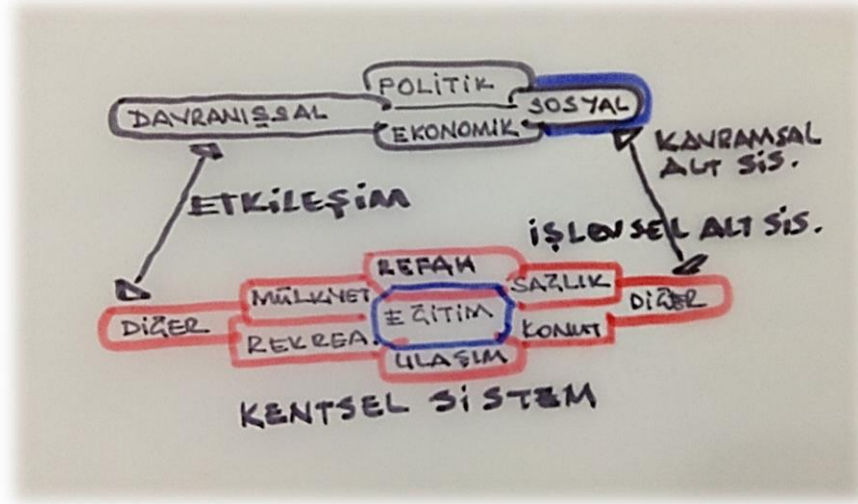 POLİTİK
DAVRANIŞSAL
SOSYAL
EKONOMİK
KAVRAMSAL
ALT SİS.
ETKİLEŞİM
İŞLEVSEL ALT SİS.
REFAH
MÜLKİYET
SAĞLIK
DİĞER
EĞİTİM
DİĞER
REKREA.
KONUT
ULAŞIM
KENTSEL SİSTEM